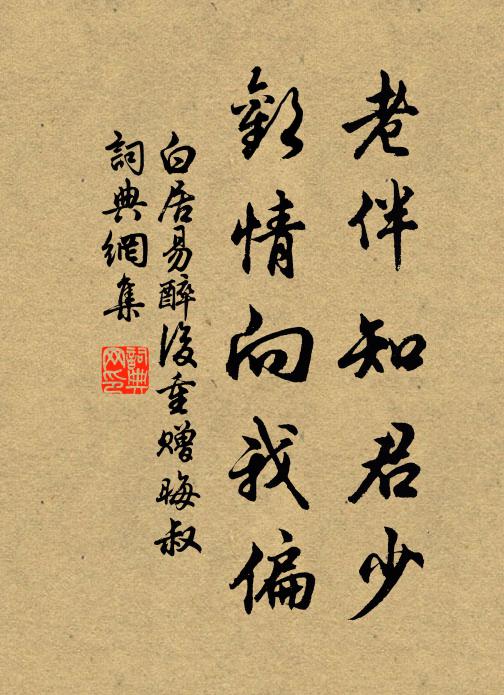 老伴知君少
歡情向我偏
白居易醉後重贈晦叔
詞典網集
詞典網印